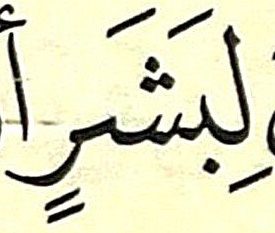 لِبَشَرٍ أ